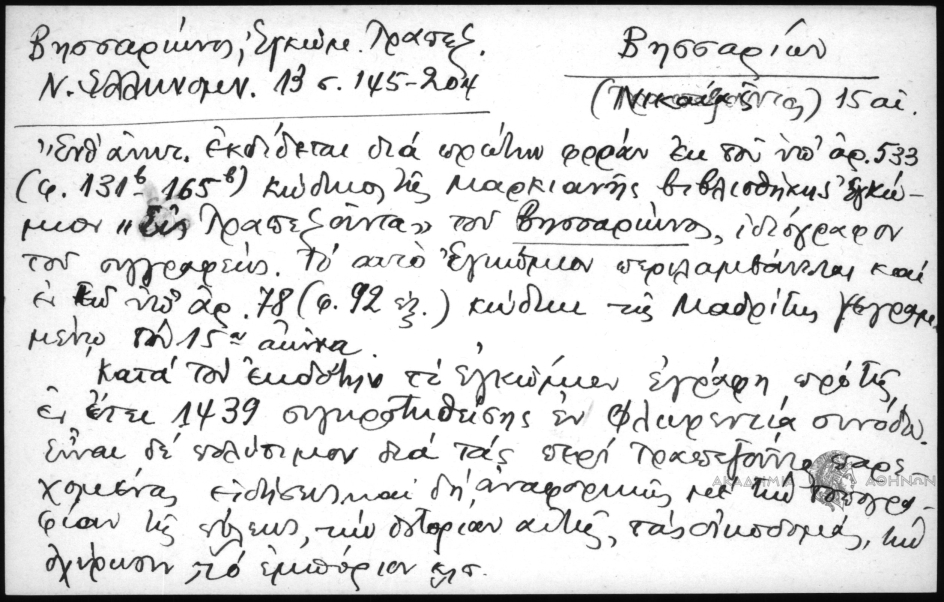 Βησσαρίωνος, Ἐγκώμ. Τραπεζ.
Ν. Ἑλληνομν. 13 σ. 145-204
Βησσαρίων
15 αἰ.
"Ἐνθ' ἀνωτ. ἐκδίδεται διά πρώτην φοράν ἐκ τοῦ ὑπ' ἀρ. 533
(φ. 131β 165β) κώδικος τῆς Μαρκιανῆς βιβλιοθήκης Ἐγκώ-
μιον "Εἰς Τραπεζοῦντα" τοῦ Βησσαρίωνος, ἰδιόγραφον
τοῦ συγγραφέως. Τό αὐτό Ἐγκώμιον περιλαμβάνεται καί
ἐν τῷ ὑπ' ἀρ. 78 (φ. 92 ἑξ.) κώδικι τῆς Μαδρίτης γεγραμ-
μένῳ τόν 15ον αἰῶνα.
Κατά τόν ἐκδότην τό ἐγκώμιον ἐγράφη πρό τῆς
ἐν ἔτει 1439 συγκροτηθείσης ἐν Φλωρεντίᾳ συνόδου.
Εἶναι δέ πολύτιμον διά τάς περί Τραπεζοῦντος παρε
χομένας εἰδήσεις καί δή, ἀναφορικῶς μέ τήν τοπογρα-
φίαν τῆς πόλεως, τήν ἱστορίαν αὐτῆς, τάς οἰκοδομάς, τήν
ὀχύρωσιν, τό ἐμπόριον κλπ.
ΑΚΑΔΗΜΙΑ ΑΘΗΝΩΝ